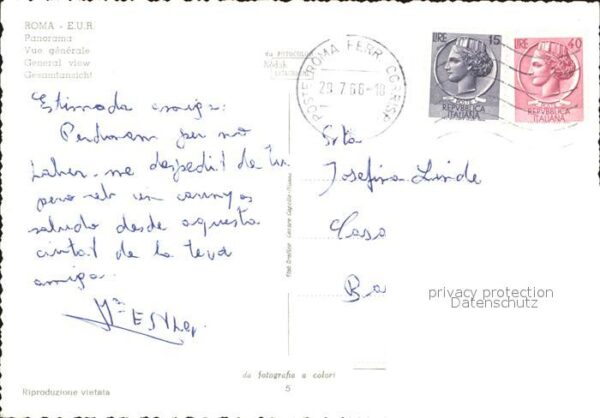 ROMA - E.U.R.
Panorama
Vue générale
General view
Gesamtansicht
Estimada amiga:
Perdonam per no
haber-me despedit de tu
pero reb un carinyos
saludo desde aquesta
ciutat de la teva
amiga.
Mª ESTHER
POSTE ROMA FERR. CORRISP.
28 7 66-18
LIRE 15
POSTE
REPVBBLICA
ITALIANA
LIRE 40
POSTE
REPVBBLICA
ITALIANA
Srta
Josefina Linde
Casa
Ba
privacy protection
Datenschutz
da fotografia a colori
5
Riproduzione vietata